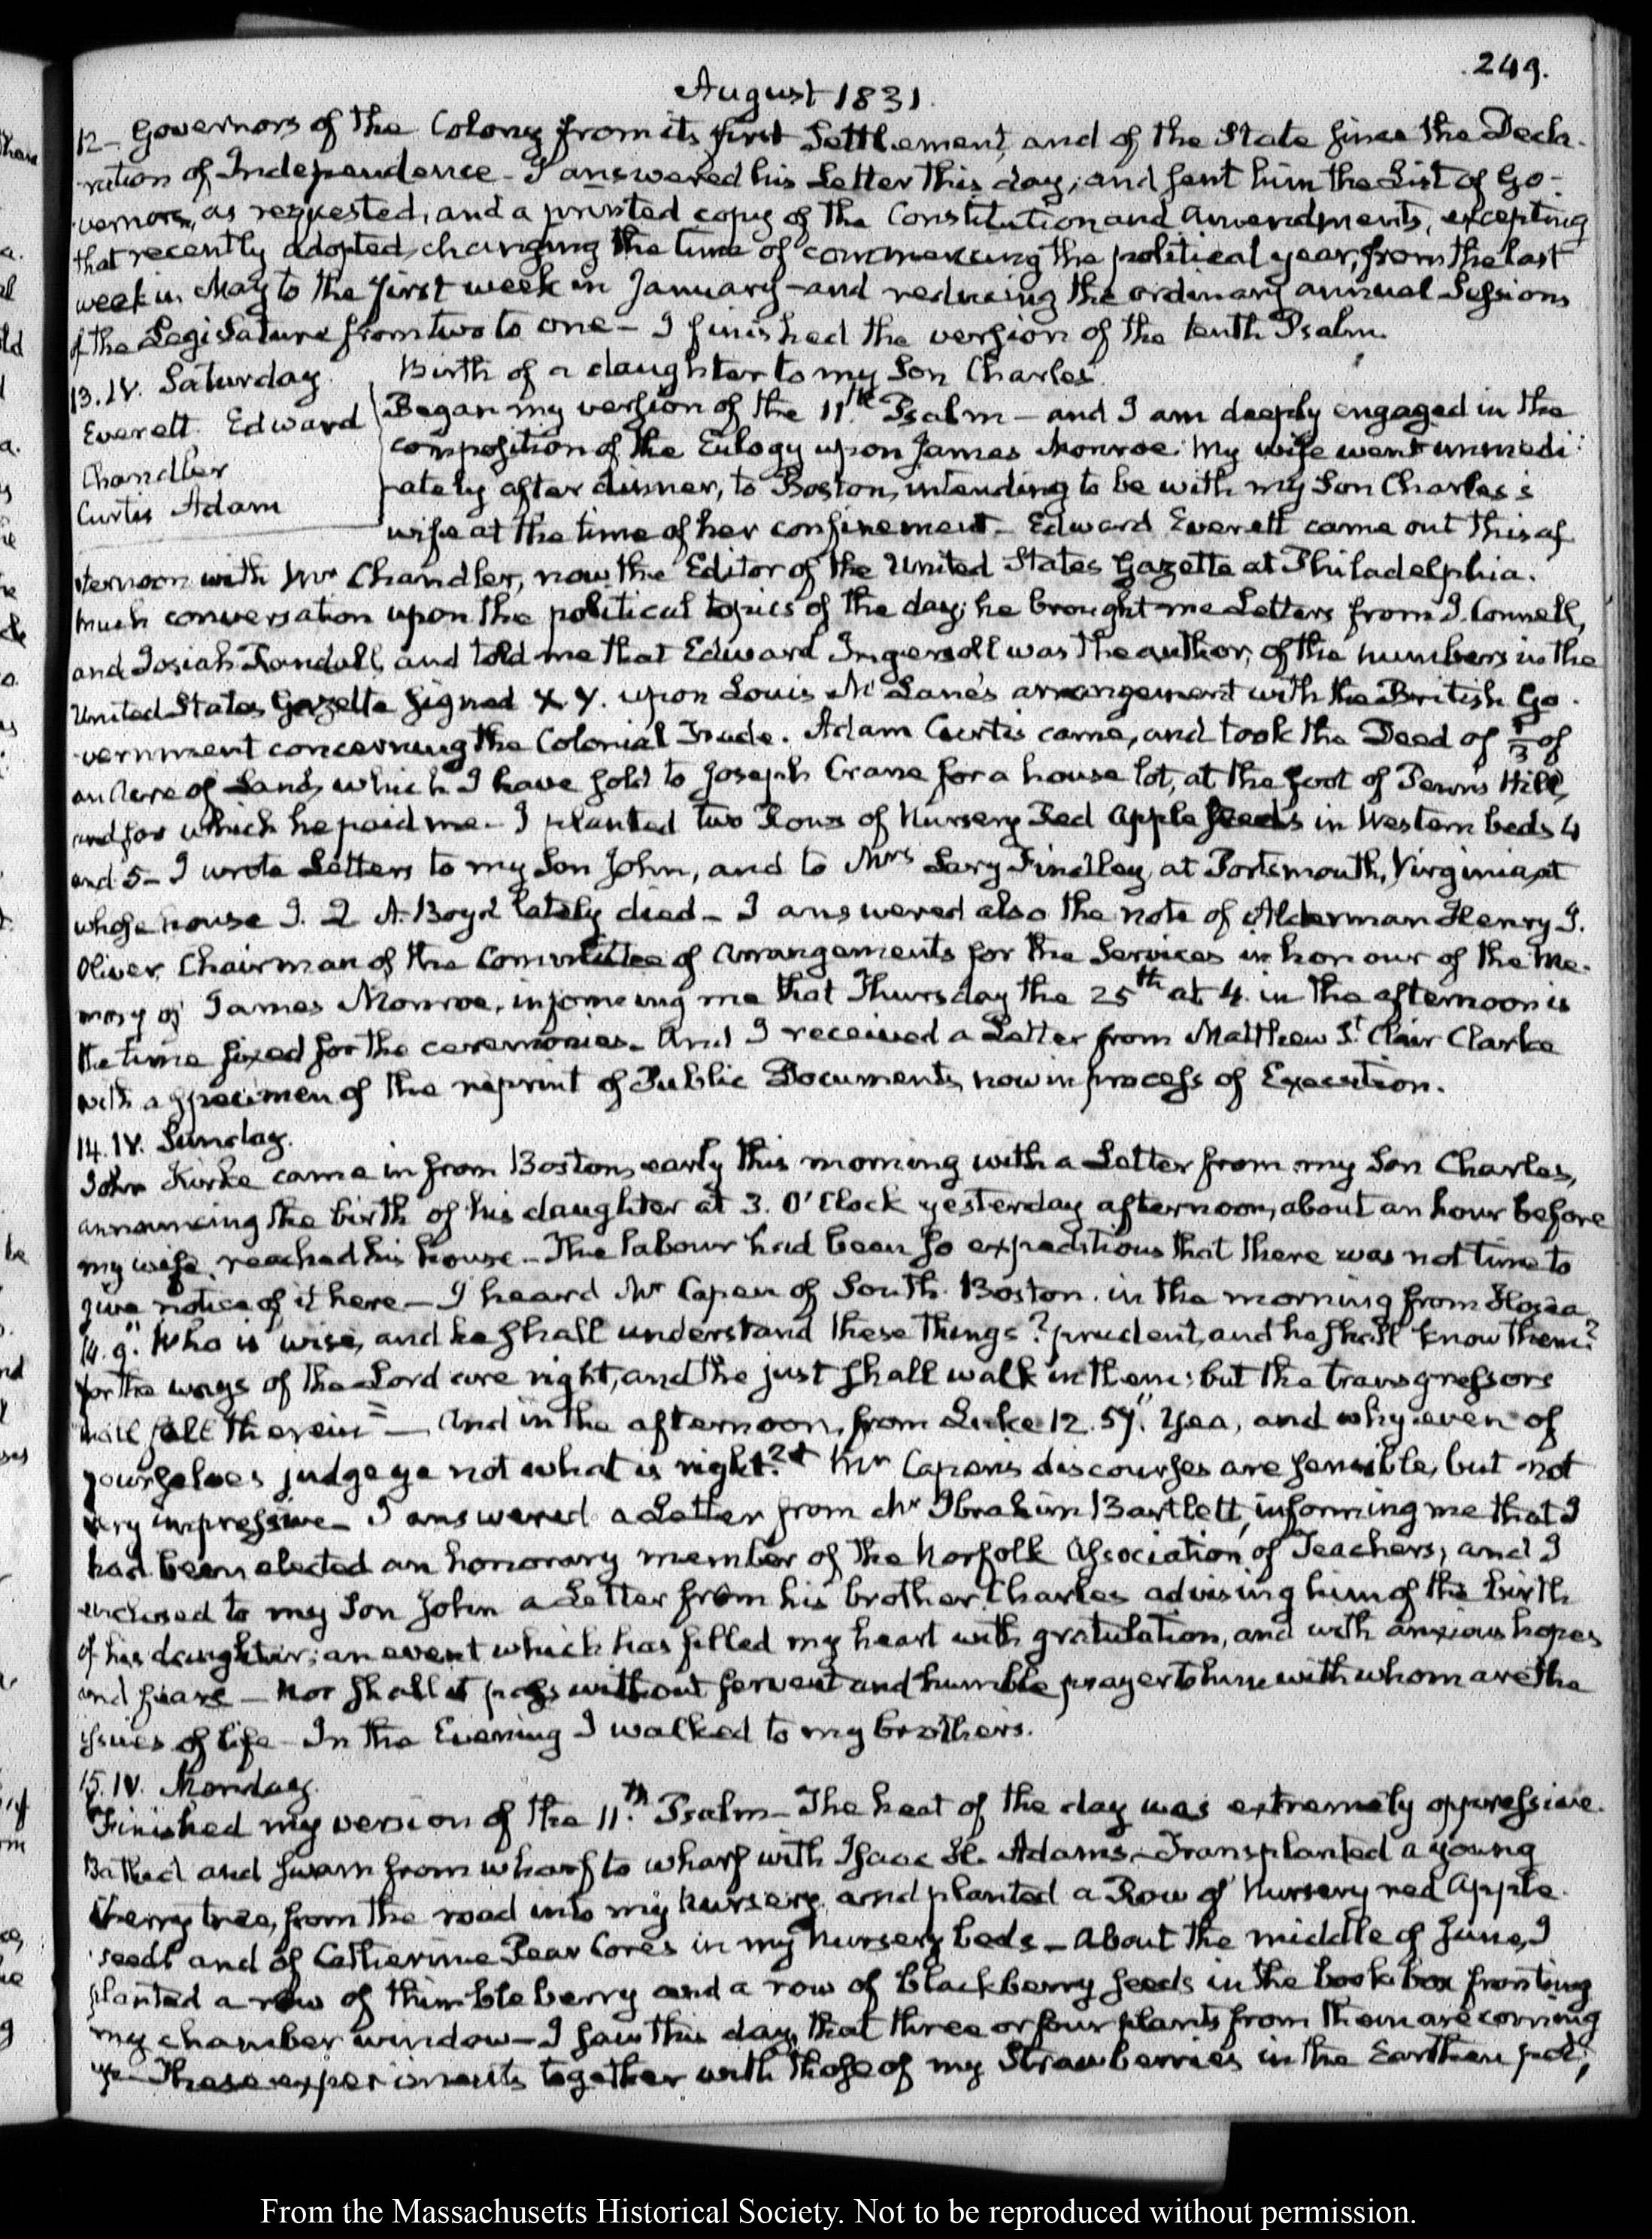 249.
August 1831.
12– Governors of the Colony from its first Settlement, and of the State since the Decla-
-ration of Independence – I answered his Letter this day, and sent him the List of Go-
-vernors, as requested, and a printed copy of the Constitution and amendments, excepting
that recently adopted, changing the time of commencing the political year, from the last
week in May to the first week in January – and reducing the ordinary annual Sessions
of the Legislature from two to one – I finished the version of the tenth Psalm.
13. IV. Saturday. Birth of a daughter to my Son Charles.
Everett Edward
Chandler
Curtis Adam
Began my version of the 11th Psalm – and I am deeply engaged in the
composition of the Eulogy upon James Monroe. My wife went immedi-
-ately after dinner, to Boston, intending to be with my Son Charles's
wife at the time of her confinement – Edward Everett came out this af
ternoon with Mr Chandler, now the Editor of the United States Gazette at Philadelphia.
Much conversation upon the political topics of the day; he brought me Letters from J. Connell,
and Josiah Randall, and told me that Edward Ingersoll was the author, of the numbers in the
United States Gazette signed X. Y. upon Louis Mc Lane's arrangement with the British Go-
-vernment concerning the Colonial Trade. Adam Curtis came, and took the Deed of 1/3 of
an Acre of Land, which I have sold to Joseph Crane for a house lot, at the foot of Penn's Hill,
and for which he paid me – I planted two Rows of Nursery Red Apple seeds in Western beds 4
and 5 – I wrote Letters to my Son John, and to Mrs Lucy Findley, at Portsmouth, Virginia, at
whose house J. Q. A. Boyd lately died – I answered also the note of Alderman Henry J.
Oliver, Chairman of the Committee of Arrangements for the Services in honour of the Me-
mory of James Monroe, informing me that Thursday the 25th at 4. in the afternoon is
the time fixed for the ceremonies – And I received a Letter from Matthew St Clair Clarke
with a specimen of the reprint of Public Documents, now in process of Execution.
14. IV. Sunday.
John Kirke came in from Boston, early this morning with a Letter from my Son Charles,
announcing the birth of his daughter at 3. O'Clock yesterday afternoon, about an hour before
my wife reached his house – The labour had been so expeditious that there was not time to
give notice of it here – I heard Mr Capen of South Boston. in the morning from Hosea
14. 9. "Who is wise, and he shall understand these things? prudent, and he shall know them?
for the ways of the Lord are right, and the just shall walk in them: but the transgressors
shall fall therein" – And in the afternoon, from Luke 12. 57. "Yea, and why even of
yourselves judge ye not what is right?" Mr Capen's discourses are sensible, but not
very impressive – I answered a Letter from Mr Ibrahim Bartlett, informing me that I
had been elected an honorary member of the Norfolk Association of Teachers; and I
enclosed to my Son John a Letter from his brother Charles advising him of the birth
of his daughter; an event which has filled my heart with gratulation, and with anxious hopes
and fears – Nor shall it pass without fervent and humble prayer to him with whom are the
issues of life – In the Evening I walked to my brother's.
15. IV. Monday.
Finished my version of the 11th Psalm – The heat of the day was extremely oppressive.
Bathed and swam from wharf to wharf with Isaac H. Adams – Transplanted a young
Cherry tree, from the road into my Nursery, and planted a Row of Nursery red Apple-
seeds and of Catherine Pear Cores in my Nursery beds – About the middle of June, I
planted a row of thimbleberry and a row of blackberry seeds in the box fronting
my chamber window – I saw this day, that three or four plants from them are coming
up – These experiments together with those of my Strawberries in the Earthen pot,
From the Massachusetts Historical Society. Not to be reproduced without permission.